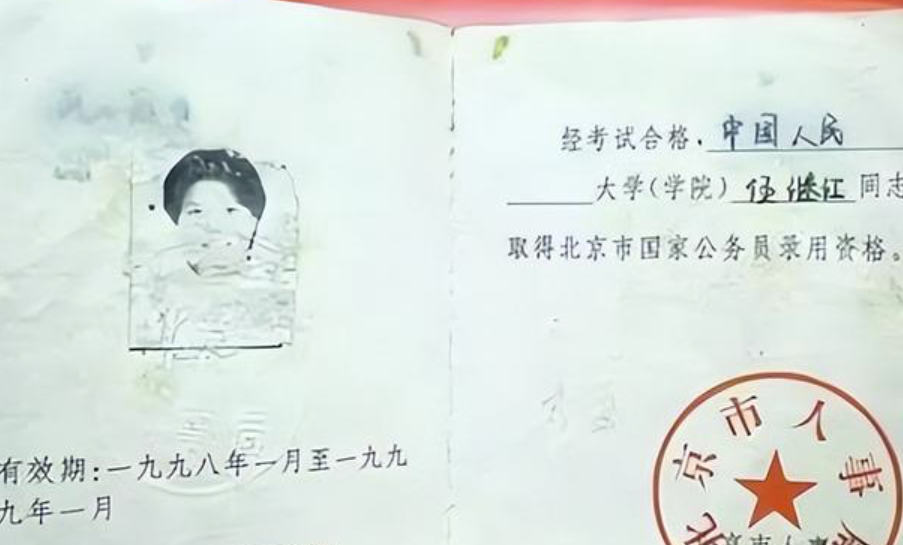 有效期:一九九八年一月至一九九
九年一月
经考试合格,中国人民
大学(学院)伍继红同志
取得北京市国家公务员录用资格。
北京市人事